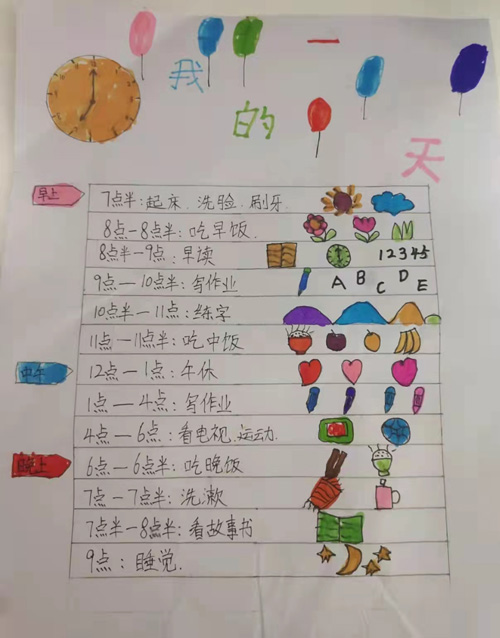 我的一天
早上
7点半:起床.洗验.刷牙.
8点—8点半:吃早饭.
8点半—9点:早读
12345
9点—10点半:写作业
A B C D E
10点半—11点:练字
11点—11点半:吃中饭
中午
12点—1点:午休
1点—4点:写作业
4点—6点:看电视.运动.
晚上
6点—6点半:吃晚饭
7点—7点半:洗漱
7点半—8点半:看故事书
9点:睡觉.